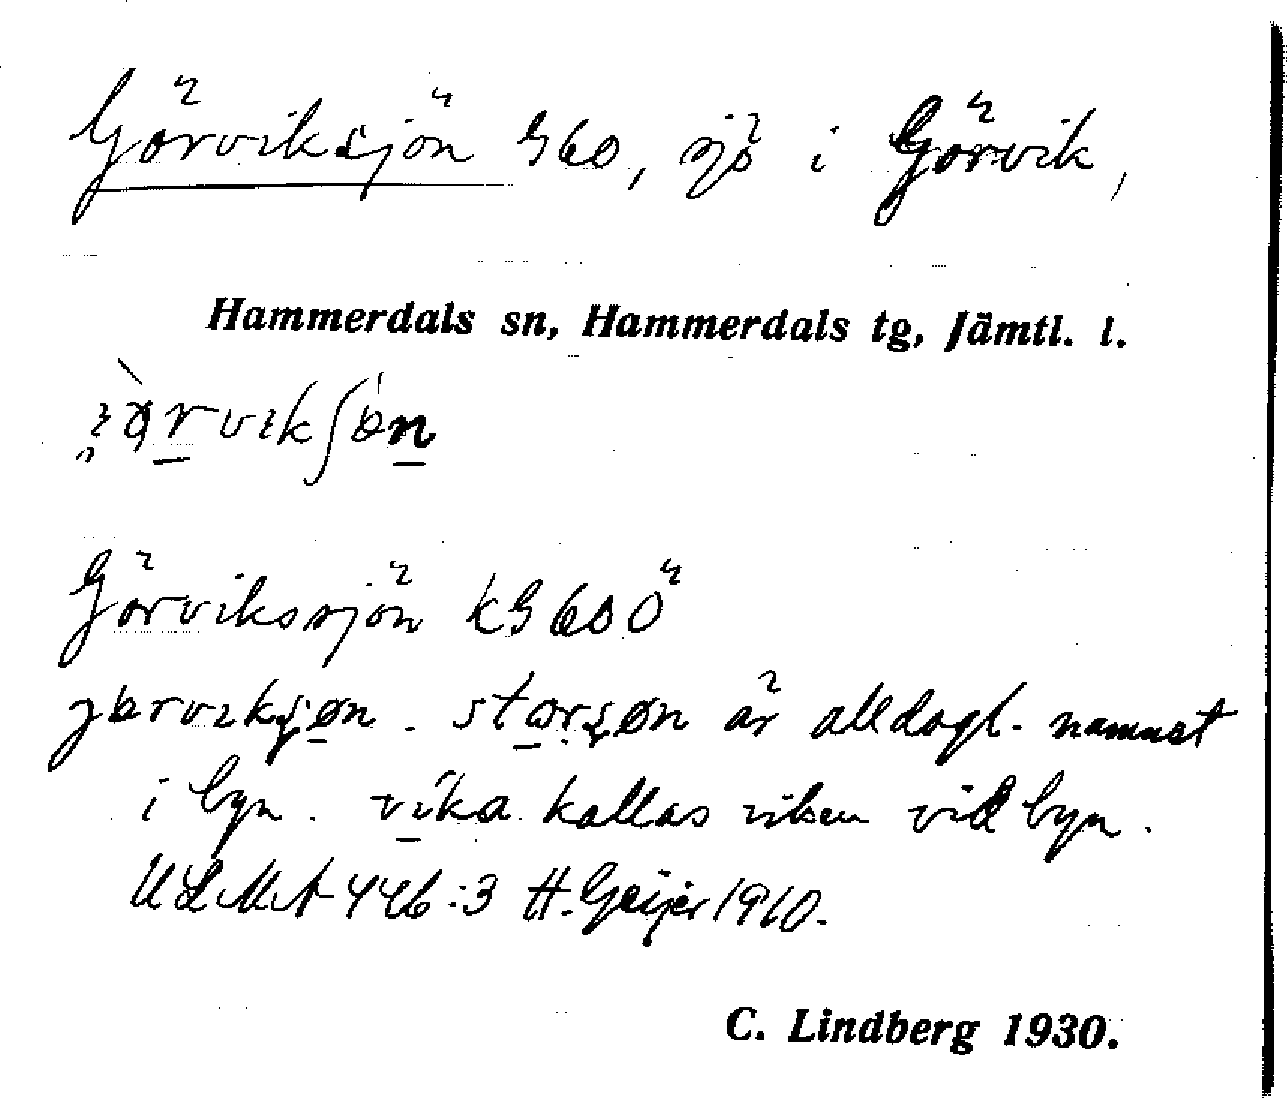 Görviksjön G60, sjö i Görvik,
Hammerdals sn, Hammerdals tg, Jämtl. l.
Görvikssjön kG60 Ö
är alldagl. namnet
i byn. vika kallas viken vid byn.
ULMA 446:3 H. Geijer 1910.
C. Lindberg 1930.